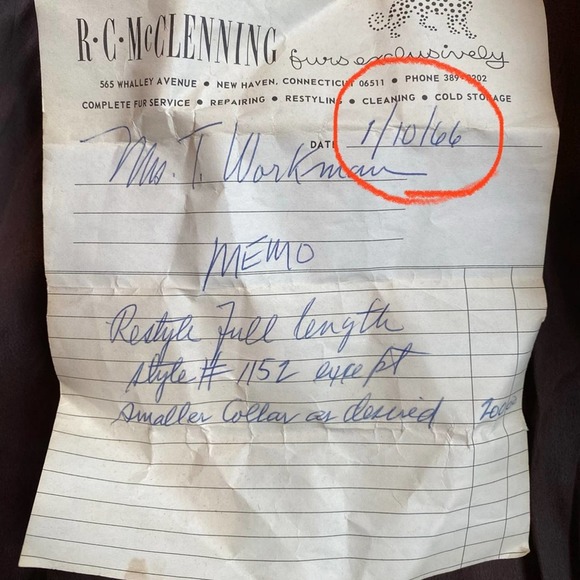 R·C·McCLENNING furs exclusively
565 WHALLEY AVENUE • NEW HAVEN, CONNECTICUT 06511 • PHONE 389-0202
COMPLETE FUR SERVICE • REPAIRING • RESTYLING • CLEANING • COLD STORAGE
DATE 1/10/66
Mrs. T. Workman
MEMO
Restyle full length
style # 1152 except
smaller collar as desired